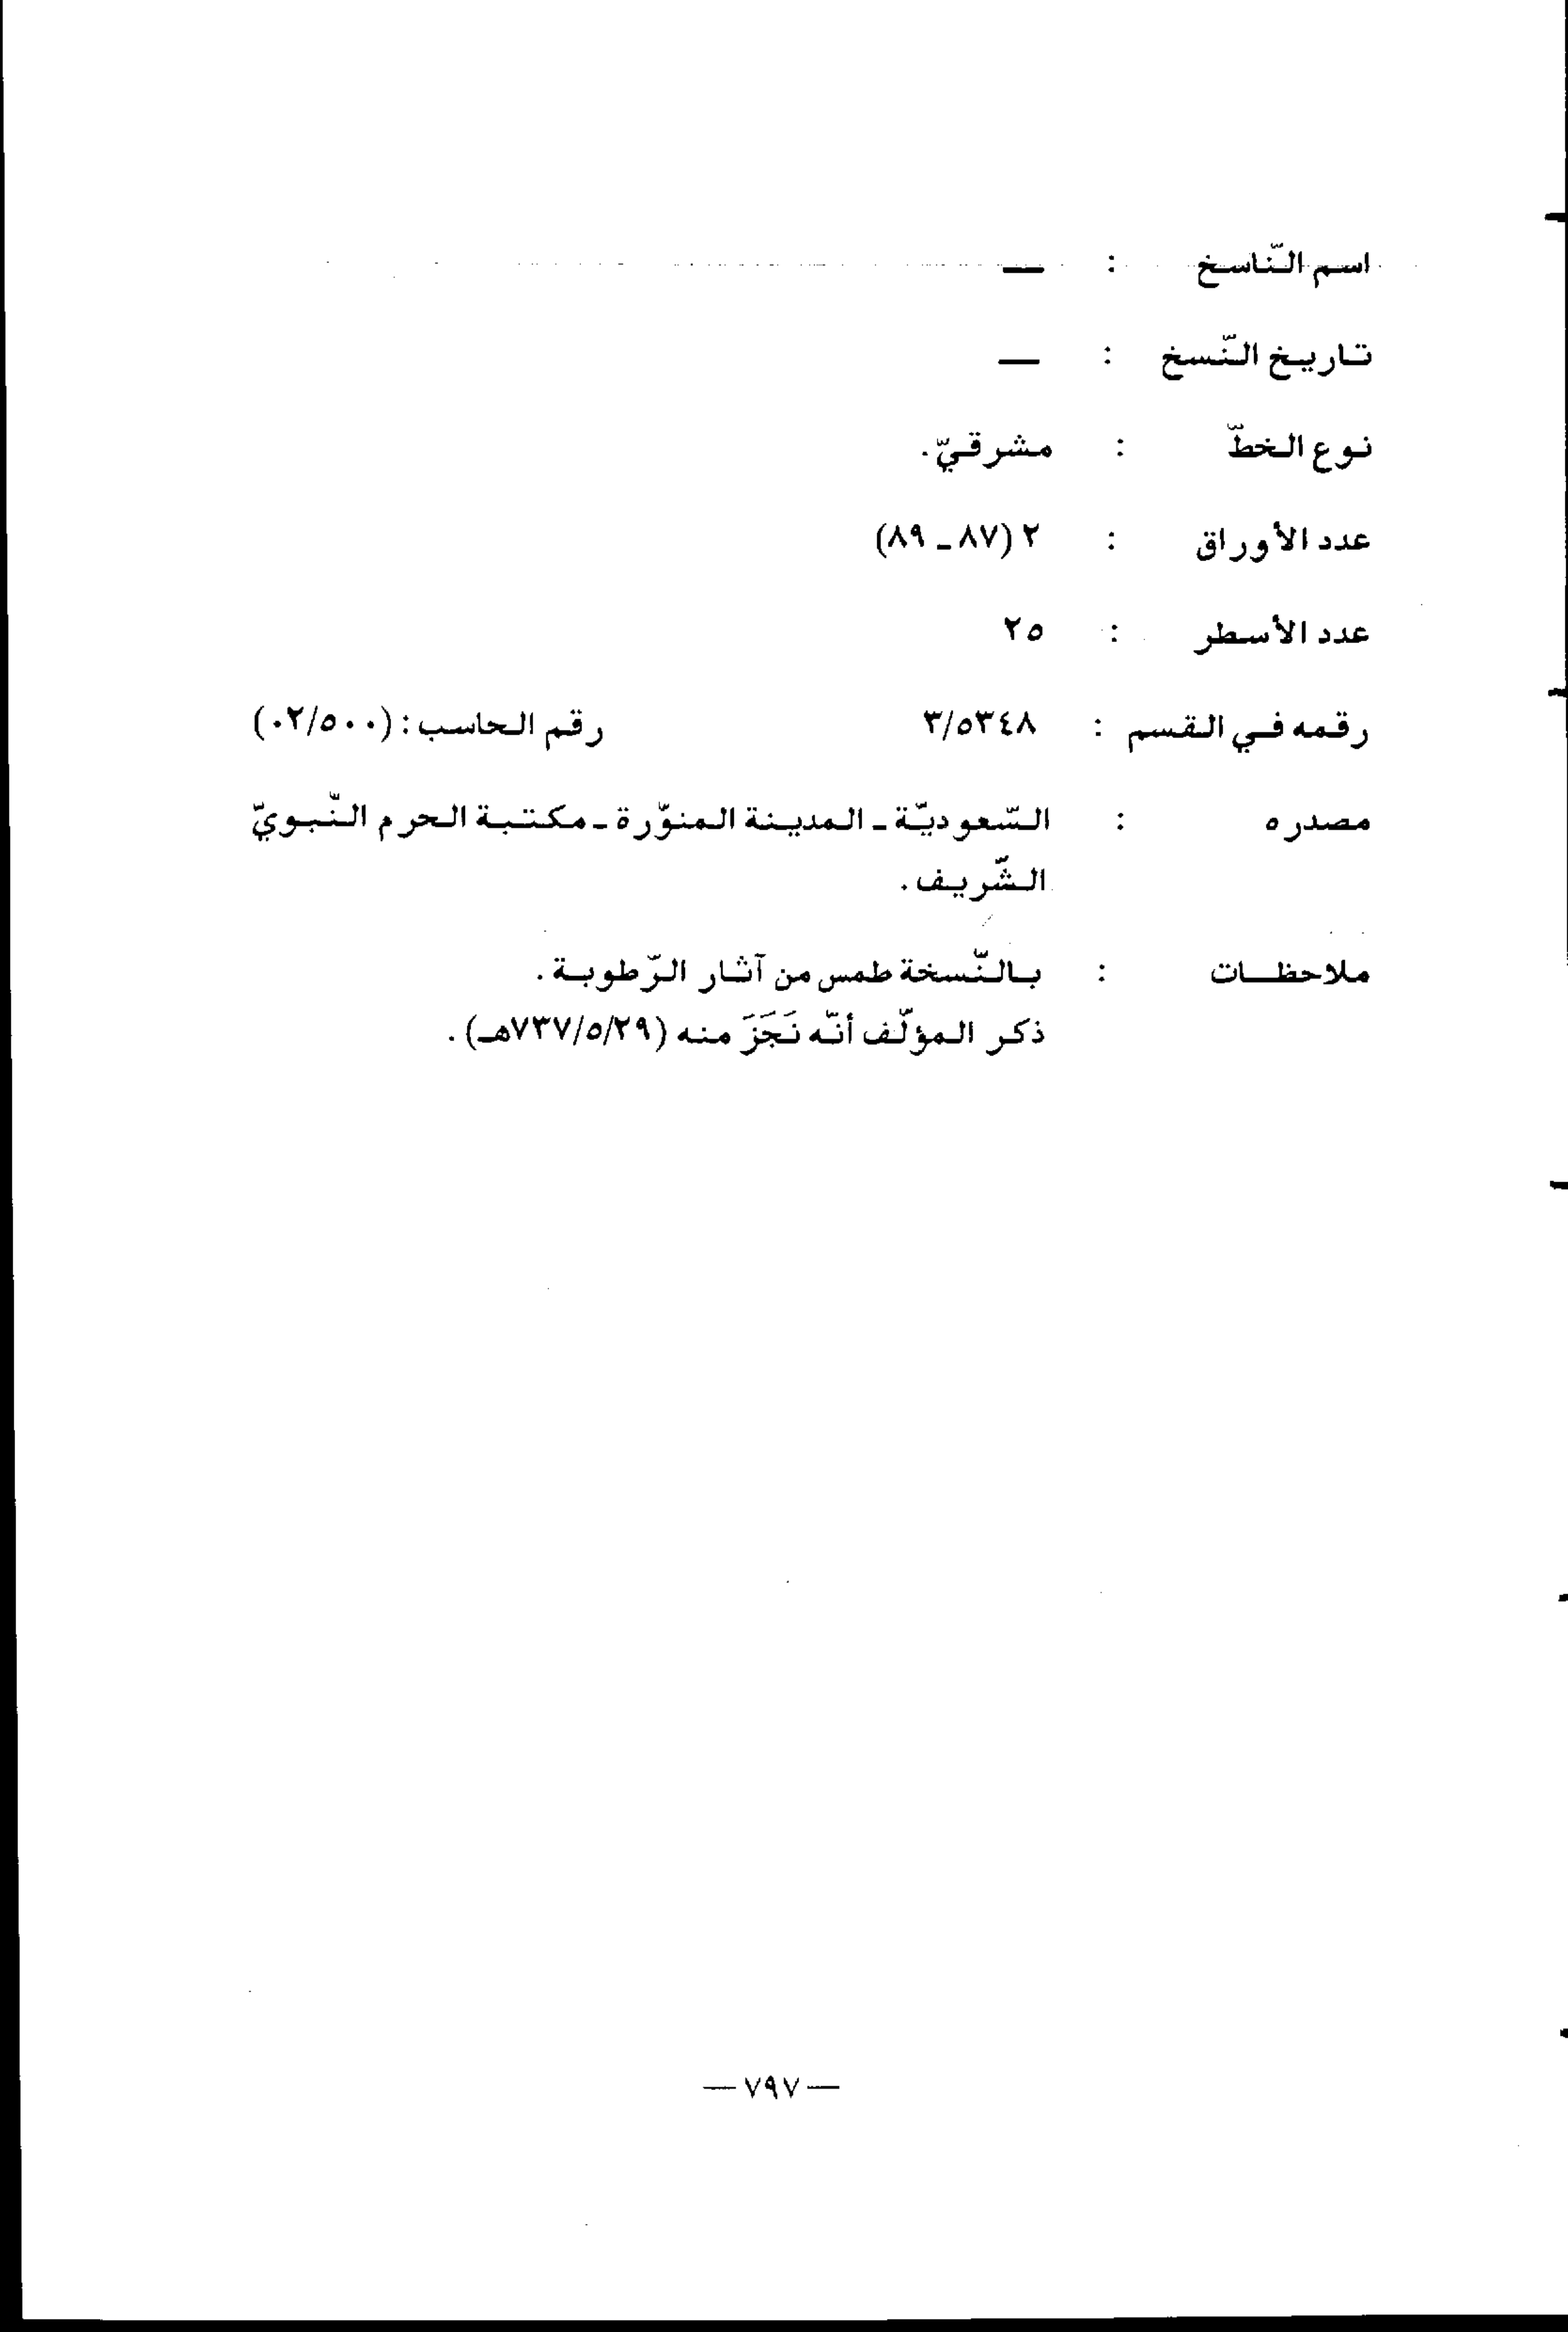 اسم النّاسخ : —
تاريخ النّسخ : —
نوع الخطّ : مشرقيّ.
عدد الأوراق : ٢ (٨٧ - ٨٩)
عدد الأسطر : ٢٥
رقمه في القسم : ٣/٥٣٤٨ رقم الحاسب : (٠٢/٥٠٠)
مصدره : السّعوديّة - المدينة المنوّرة - مكتبة الحرم النّبويّ
الشّريف.
ملاحظات : بالنّسخة طمس من آثار الرّطوبة.
ذكر المؤلّف أنّه نَجَزَ منه (٧٣٧/٥/٢٩هـ).
— ٧٩٧ —